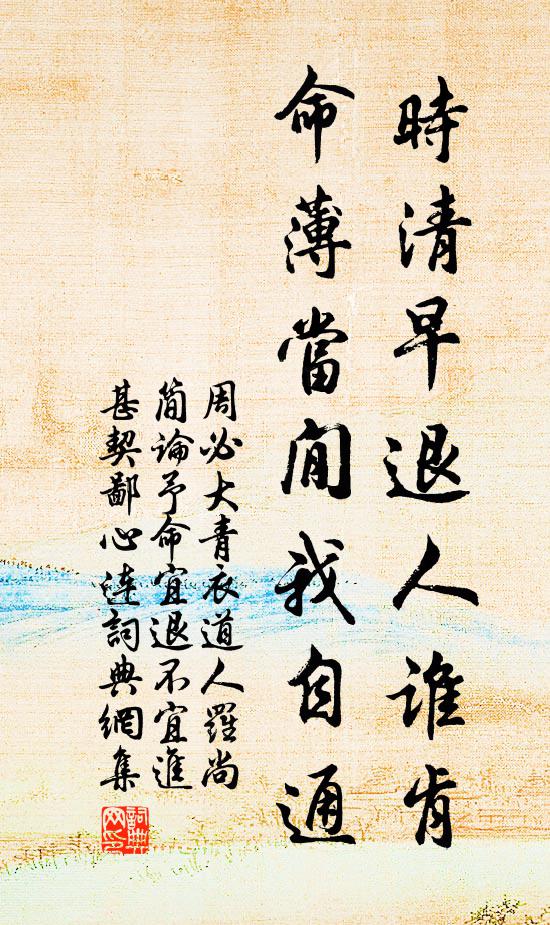 時清早退人誰肯
命薄當閒我自通
周必大青衣道人羅尚
简論予命宜退不宜進
甚契鄙心連詞典網集
詞典
网印